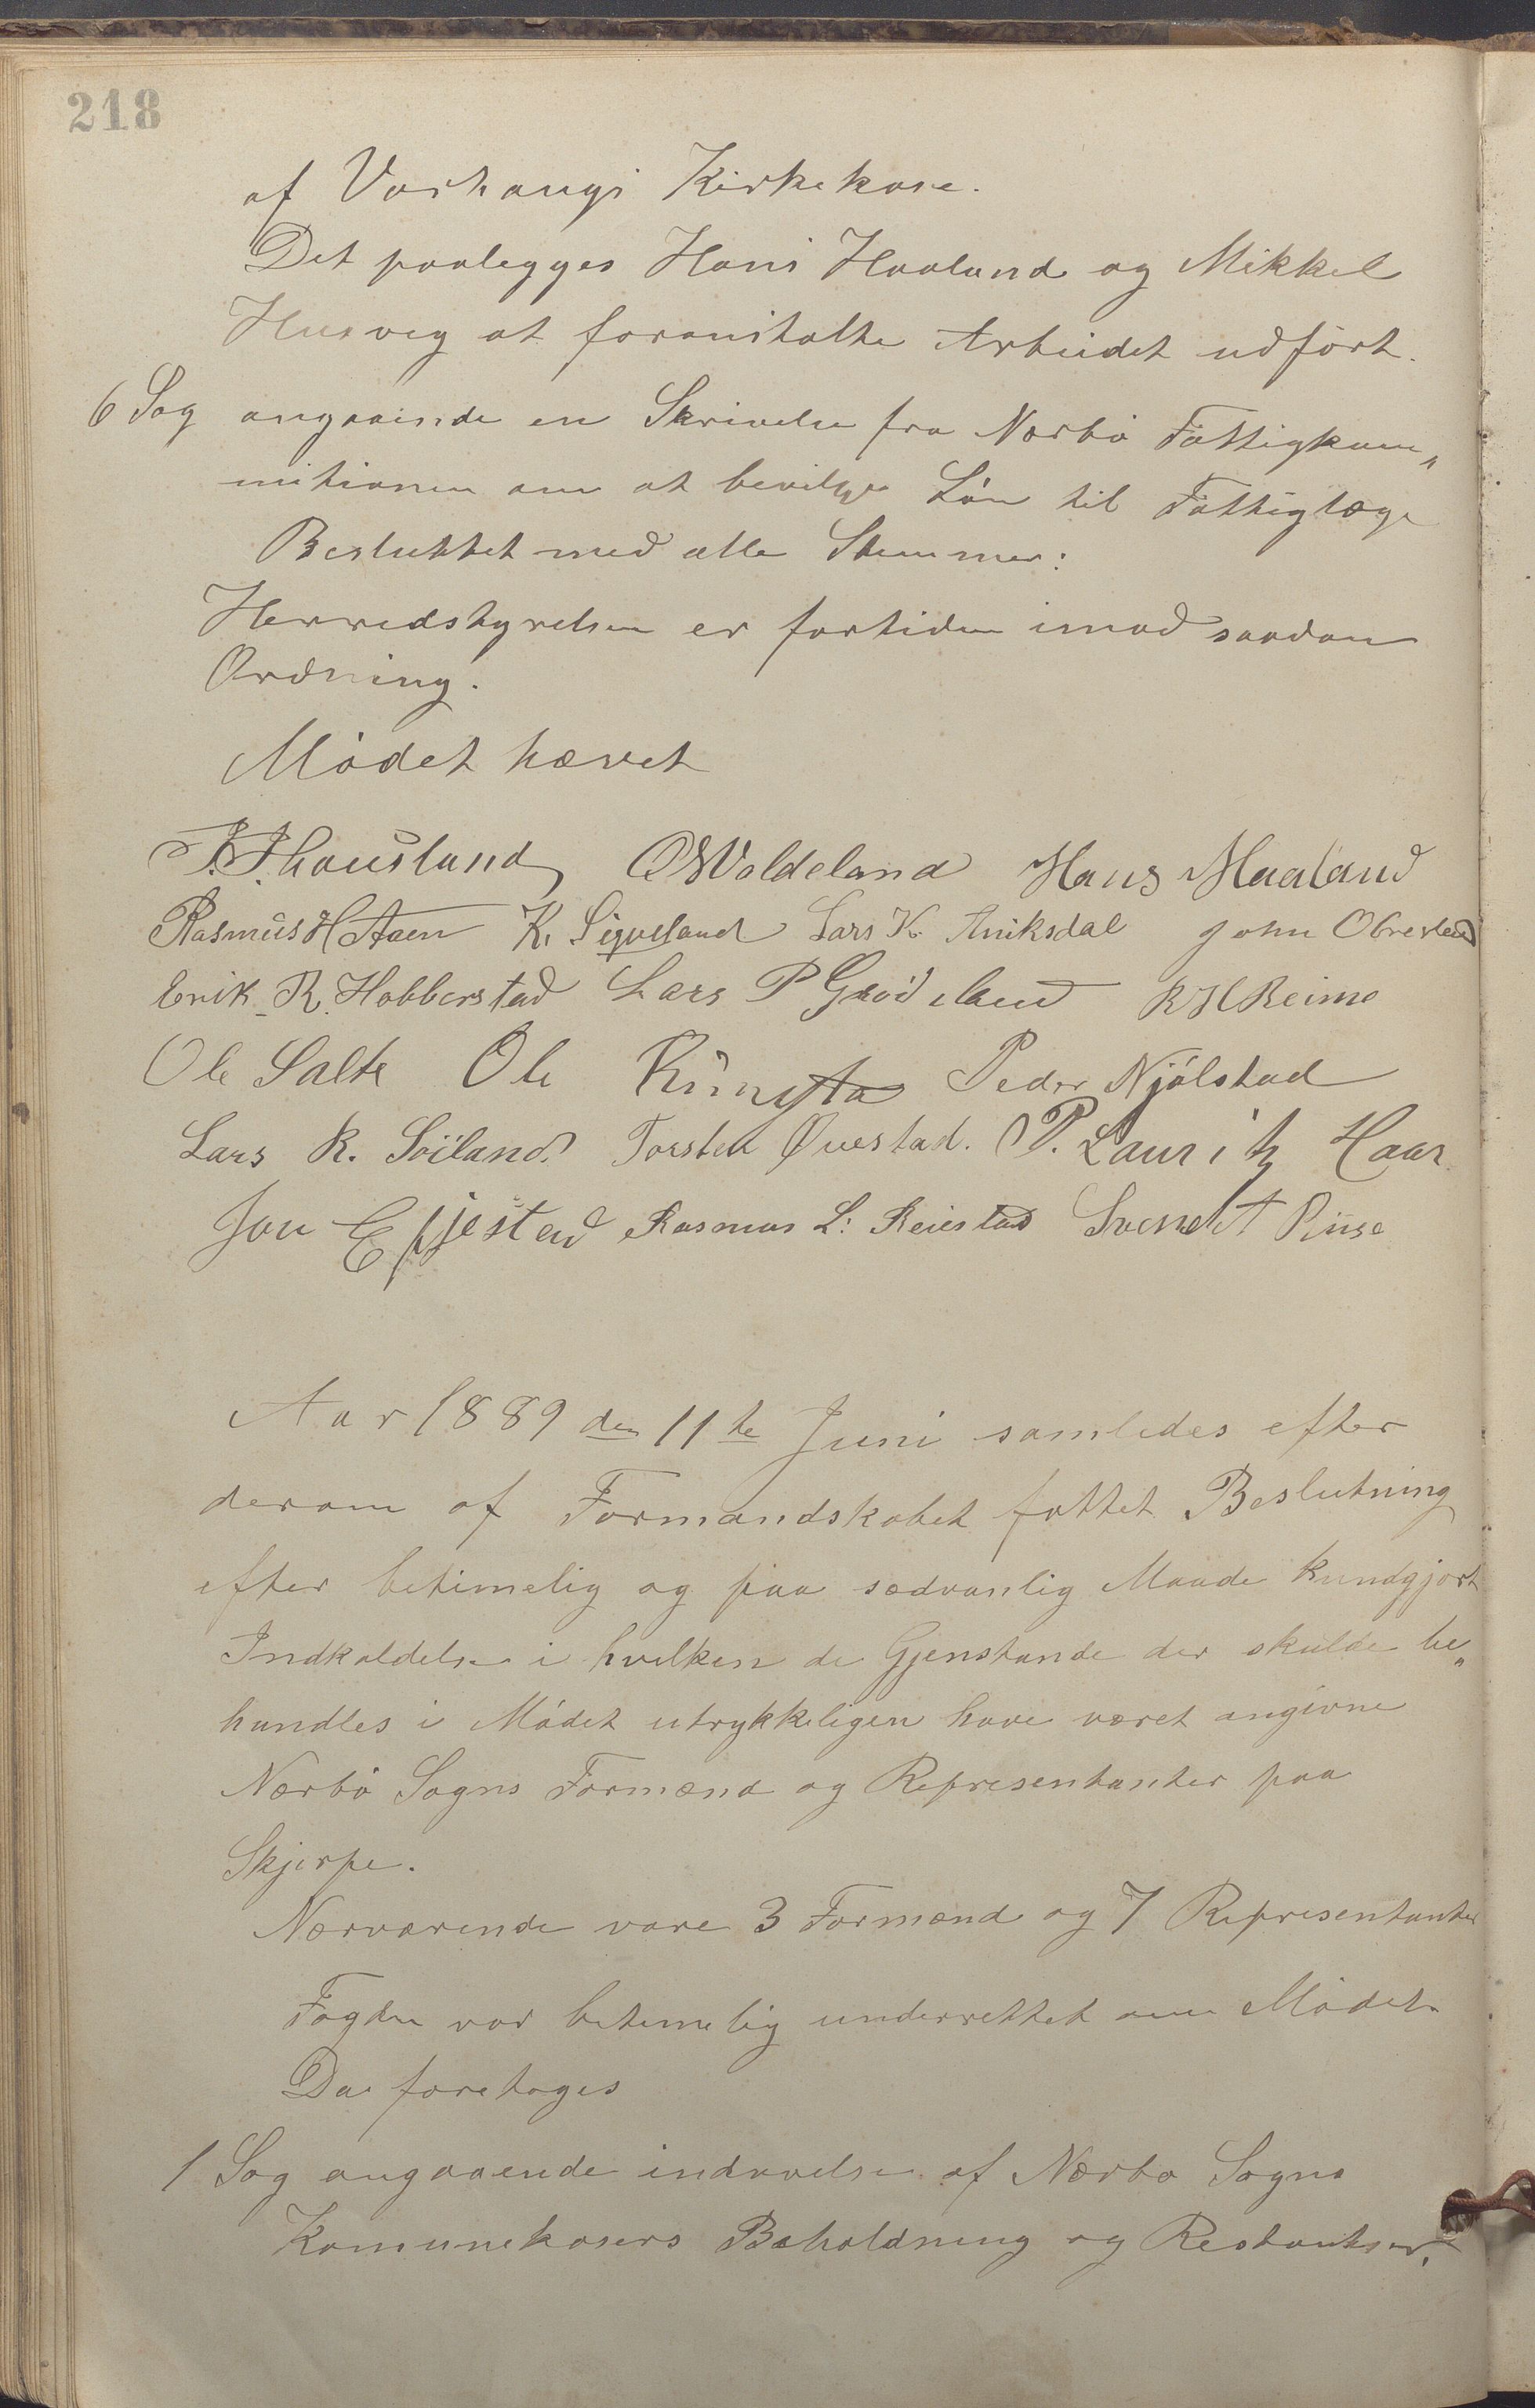 218
af Varhaugs Kirkekase.
Det paalegges Hans Haaland og Mikkel
Husveg at foranstalte Arbeidet udført.
6 Sag angaaende en Skrivelse fra Nærbø Fattigkom„
mitionen om at bevilge Løn til Fattiglæge
Besluttet med alle Stemmer:
Herredstyrelsen er fortiden imod saadan
Ordning.
Mødet hævet
J. J. Hausland OWoldeland Hans Haaland
Rasmus H Aaen K. Siqveland Lars K. Aniksdal John Obrestad
Erik R. Hobberstad Lars P Grødeland R H Reime
Ole Salte Ole Ringsta Peder Njølstad
Lars R. Söiland Torsten Øvestad. O P. Lauritz Haar
Jon E fjestad Rasmus L: Reiestad Svend T Riise
Aar 1889 den 11te Juni samledes efter
derom af Formandskabet fattet Beslutning
efter betimelig og paa sædvanlig Maade kundgjort
Indkaldelse i hvilken de Gjenstande der skulde be„
handles i Mødet utrykkeligen have været angivne
Nærbø Sogns Formænd og Representanter paa
Skjerpe.
Nærværende vare 3 Formænd og 7 Representanter
Fogden var betimelig underrettet om Mødet.
Da foretages
1 Sag angaaende indravelse af Nærbø Sogns
Komunekasers Beholdning og Restantser.